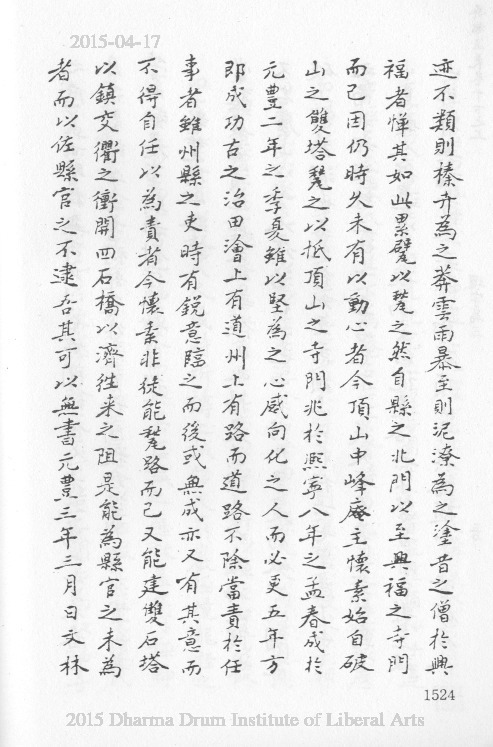 2015-04-17
迹不類則榛卉為之莽雲雨暴至則泥潦為之塗昔之僧於興
福者憚其如此累甓以甃之然自縣之北門以至興福之寺門
而已因仍時久未有以動心者今頂山中峰庵主懷素始自破
山之雙塔甃之以抵頂山之寺門兆於熙寧八年之孟春成於
元豊二年之季夏雖以堅為之心感向化之人而必更五年方
即成功古之治田澮上有道州上有路而道路不除當責於任
事者雖州縣之吏時有銳意臨之而後或無成亦又有其意而
不得自任以為責者今懷素非徒能甃路而已又能建雙石塔
以鎮交衢之衝開四石橋以濟往来之阻是能為縣官之未為
者而以佐縣官之不逮吾其可以無書元豊三年三月日文林
1524
2015 Dharma Drum Institute of Liberal Arts